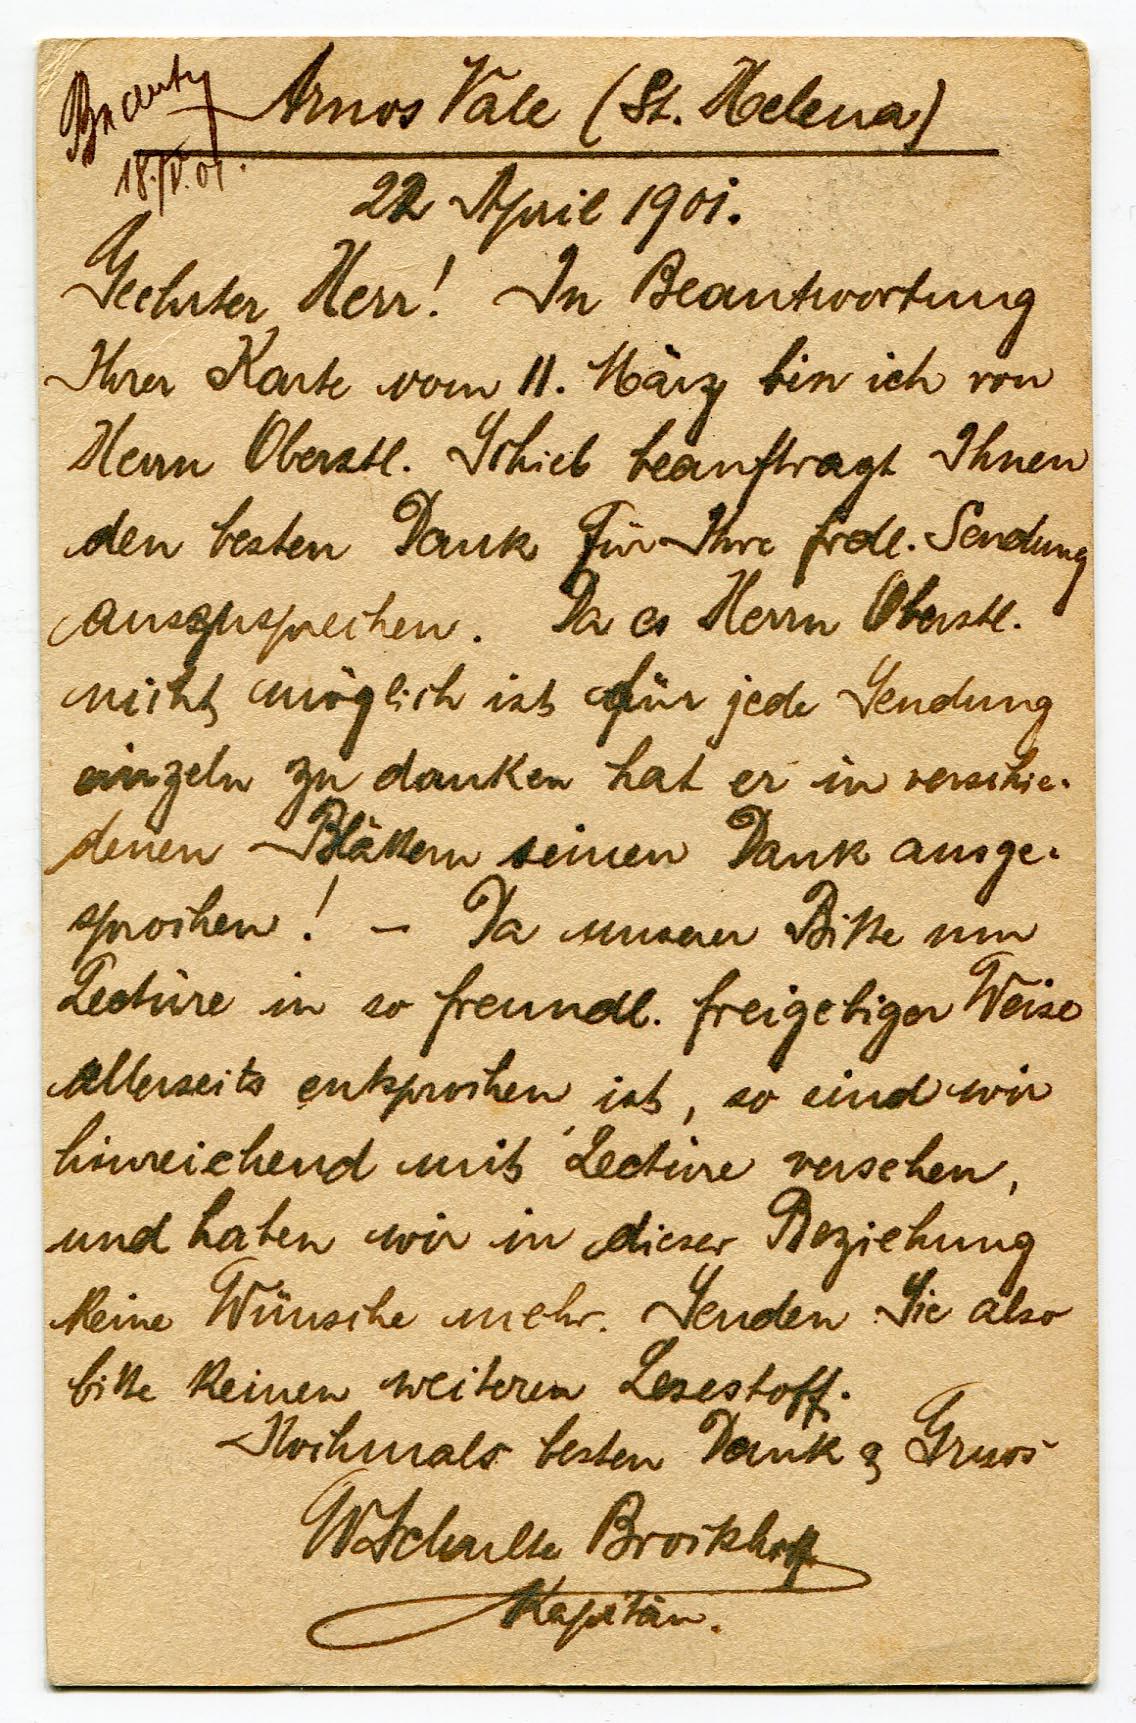 18.IV.01.
Arnos Vale (St. Helena)
22 April 1901.
Geehrter Herr! In Beantwortung
Ihrer Karte vom 11. März bin ich von
Herrn Oberstl. Schiel beauftragt Ihnen
den besten Dank für Ihre frdl. Sendung
auszusprechen. Da es Herrn Oberstl.
nicht möglich ist für jede Sendung
einzeln zu danken hat er in verschie-
denen Blättern seinen Dank ausge-
sprochen! – Da unserer Bitte um
Lectüre in so freundl. freigebiger Weise
allerseits entsprochen ist, so sind wir
hinreichend mit Lectüre versehen,
und haben wir in dieser Beziehung
keine Wünsche mehr. Senden Sie also
bitte keinen weiteren Lesestoff.
Nochmals besten Dank & Gruss
W Schulte Brockhoff
Kapitän.